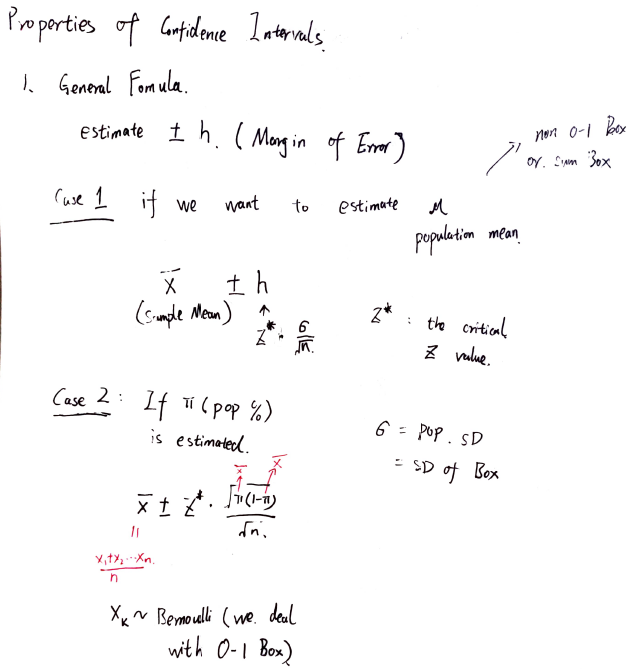 Properties of Confidence Intervals.
1. General Fomula.
estimate ± h. (Margin of Error)
non 0-1 Box
or. Sum Box
Case 1 if we want to estimate μ
population mean.
x̄ ± h
(Sample Mean) ↑
Z* · σ/√n.
Z* : the critical
Z value.
Case 2 : If π (pop %)
is estimated.
σ = pop. SD
= SD of Box
x̄ x̄
x̄ ± Z* · √π(1-π)/√n.
=
x₁+x₂...xₙ./n
Xₖ ~ Bernoulli (we deal
with 0-1 Box)